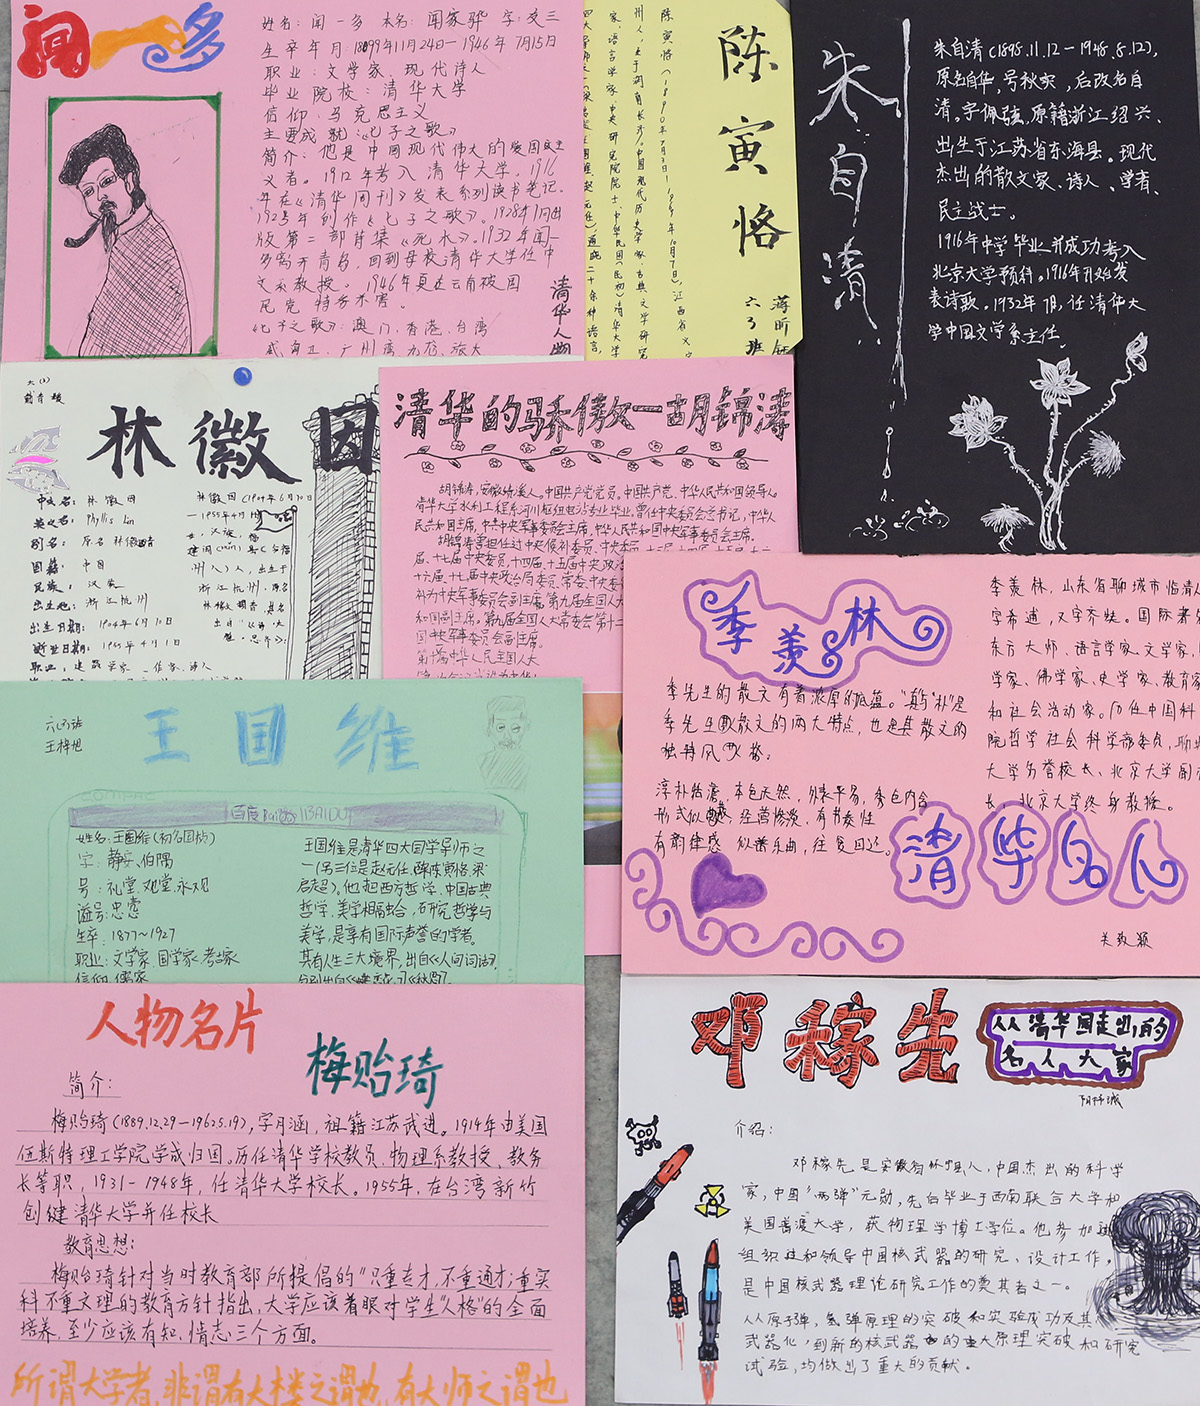 闻一多
姓名:闻一多 本名:闻家骅 字:友三
生卒年月:1899年11月24日—1946年7月15日
职业:文学家、现代诗人
毕业院校:清华大学
信仰:马克思主义
主要成就:《七子之歌》
简介:他是中国现代伟大的爱国民主
义者。1912年考入清华大学。1916
年在《清华周刊》发表系列读书笔记。
1925年创作《七子之歌》。1928年1月出
版第二部诗集《死水》。1932年闻一
多离开青岛,回到母校清华大学任中
文系教授。1946年夏在云南被国
民党特务杀害。
《七子之歌》:澳门、香港、台湾
威海卫、广州湾、九龙、旅大
清华人物
陈寅恪
陈寅恪(1890年7月3日—1969年10月7日),江西省义宁
州人,生于湖南长沙。中国现代历史学家、古典文学研究
家、语言学家、中央研究院院士、中华民国(民初)清华大学
六3班
朱自清
朱自清(1898.11.12—1948.8.12),
原名自华,号秋实,后改名自
清。字佩弦。原籍浙江绍兴、
出生于江苏省东海县。现代
杰出的散文家、诗人、学者、
民主战士。
1916年中学毕业并成功考入
北京大学预科。1916年开始发
表诗歌。1932年7月,任清华大
学中国文学系主任。
六(3)
林徽因
中文名:林徽因
英文名:Phyllis Lin
别名:原名林徽音
国籍:中国
民族:汉族
出生地:浙江杭州
出生日期:1904年6月10日
逝世日期:1955年4月1日
职业:建筑学家、作家、诗人
林徽因(1904年6月10日
—1955年4月1日
女,汉族,福
建闽(min)县(今福
州)人,出生于
浙江杭州。原名
林徽音,其名
出自《诗·大
雅·思齐》:
清华的骄傲—胡锦涛
胡锦涛,安徽绩溪人。中国共产党党员。中国共产党、中华人民共和国领导人。
清华大学水利工程系河川枢纽电站专业毕业。曾任中央委员会总书记,中华人
民共和国主席,中共中央军事委员会主席,中华人民共和国中央军事委员会主席。
胡锦涛曾担任过中央候补委员、中央委员
届、十七届中央委员,十四届、十五届中央政治
十六届、十七届中央政治局委员、常委,中央委
补为中央军事委员会副主席,第九届全国人大
和国副主席。第九届全国人大常委会第十二
国中央军事委员会副主席。
第十届中华人民共和国人大
季羡林
季先生的散文有着浓厚的底蕴。"真与朴"是
季先生散文的两大特点,也是其散文的
独特风格。
淳朴恬澹,本色天然,外表平易,秀色内含
形式似散,经营惨淡,有节奏性
有韵律感,似谱乐曲,往复回还。
季羡林,山东省聊城市临清人
字希逋,又字齐奘。国际著名
东方大师、语言学家、文学家、
学家、佛学家、史学家、教育家
和社会活动家。历任中国科
院哲学社会科学部委员、聊城
大学名誉校长、北京大学副
长、北京大学终身教授。
清华名人
六(3)班
王梓旭
王国维
百度Baidu 11BAIDU
姓名:王国维(初名国桢)
字:静安、伯隅
号:礼堂、观堂、永观
谥号:忠悫
生卒:1877~1927
职业:文学家、国学家、考古家
信仰:儒家
王国维是清华四大国学导师之
一(另三位是赵元任、陈寅恪、梁
启超)。他把西方哲学、中国古典
哲学、美学相融合,研究哲学与
美学,是享有国际声誉的学者。
其有人生三大境界,出自《人间词话》。
人物名片
梅贻琦
简介:
梅贻琦(1889.12.29—1962.5.19),字月涵,祖籍江苏武进。1914年由美国
伍斯特理工学院学成归国。历任清华学校教员、物理系教授、教务
长等职,1931-1948年,任清华大学校长。1955年,在台湾新竹
创建清华大学并任校长
教育思想:
梅贻琦针对当时教育部所提倡的"只重专才,不重通才;重实
科不重文理的教育方针指出,大学应该着眼对学生"人格"的全面
培养,至少应该有知、情、志三个方面。
所谓大学者,非谓有大楼之谓也,有大师之谓也
邓稼先
从清华园走出的
名人大家
介绍:
邓稼先是安徽省怀宁县人,中国杰出的科学
家,中国"两弹"元勋,先后毕业于西南联合大学和
美国普渡大学,获物理学博士学位。他参加过
组织过和领导中国核武器的研究、设计工作,
是中国核武器理论研究工作的奠基者之一。
从原子弹、氢弹原理的突破和实验成功及其
武器化,到新的核武器的重大原理突破和研究
试验,均做出了重大的贡献。